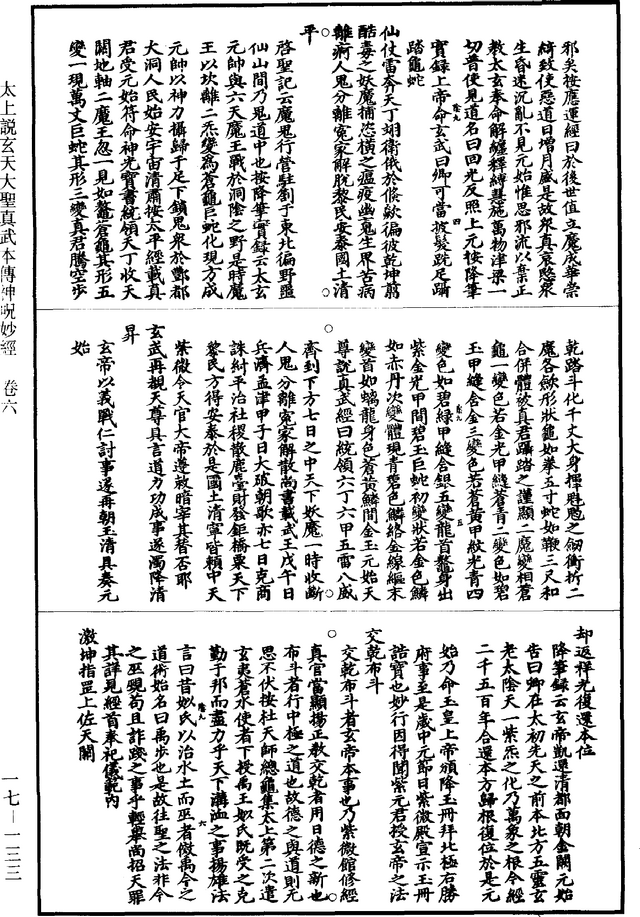 太上説玄天大聖真武本傳神呪妙經　卷六
一七—一三三
邪矣按應運經曰於後世值立魔成華崇
綺致使惡道日增月盛是故衆真哀愍衆
生昏迷沉亂不見元始惟思邪流以棄正
教太玄奉命解纏釋縛惠施萬物津梁一
切普使見道名曰回光反照上元按降筆
實録上帝命玄武曰卿可當披髮跣足躡
踏龜蛇
仙仗雷奔天丁翊衛俄於倏歘徧彼乾坤翦
酷毒之妖魔捕恣橫之瘟疫幽冤生界苦病
離痾人鬼分離寃家解脫黎民安泰國土清
平
啓聖記云魔鬼行營駐劄于東北徧野盟
仙山間乃鬼道中也按降筆實録云太玄
元帥與六天魔王戰於洞陰之野是時魔
王以坎離二炁變爲蒼龜巨蛇化現方成
元帥以神力攝歸于足下鎖鬼衆於酆都
大洞人民始安宇宙清肅按太平經載真
君受元始符命神光寶書統領天丁收天
關地軸二魔王忽一見如鰲蒼龜其形五
變一現萬丈巨蛇其形三變真君騰空步
乾踏斗化千丈大身擇魁之劒衝折二
魔各歛形狀龜如拳五寸蛇如鞭三尺和
合併體欲真君躡踏之謹顯二魔變相蒼
龜一變色若金光甲縫蒼青二變色如碧
玉甲縫合金三變色若蒼黄甲紋光青四
變色如碧綠甲縫合銀五變龍首鰲身出
紫金光甲間碧玉巨蛇初變狀若金色鱗
如赤丹次變體現青碧色鱗絡金線緄末
變首如螭龍身色蒼黄鱗間金玉元始天
尊説真武經曰統領六丁六甲五雷八威
齊到下方七日之中天下妖魔一時收斷
人鬼分離寃家解散尚書載武王戊午日
兵濟孟津甲子日大破朝歌亦七日克商
誅紂平治社稷散鹿臺財發鉅橋粟天下
黎民方得安泰於是國土清寧皆賴中天
紫微令天官大帝遵敕暗宰其替否耶
玄武再覩天尊具言道力功成事遂濁降清
昇
玄帝以義戰仁討事遂再朝玉清具奏元
始
却返祥光復還本位
降筆録云玄帝凱還清都面朝金闕元始
告曰卿在太初先天之前本北方五靈玄
老太陰天一紫炁之化乃萬象之根今經
二千五百年合還本方歸根復位於是元
始乃命玉皇上帝頒降玉冊拜北極右勝
府事至是歲中元節日紫微殿宣示玉冊
誥寶也妙行因得聞紫元君授玄帝之法
交乾布斗
交乾布斗者玄帝本事也乃紫微館修經
真官當顯揚正教交乾者用日德之新也
布斗者行中極之道也故德之與道則元
思不伏按杜天師總龜集太上第二次遣
玄夷蒼水使者下授禹王姒氏既受之克
勤于邦而盡力乎天下溝洫之事揚雄法
言曰昔姒氏以治水土而巫者倣禹今之
道術始名曰禹步也是故往聖之法非今
之巫覡苟且詐踐之事乎輕舉尚招天罪
其詳見經首奉祀儀範内
激坤指罡上佐天關